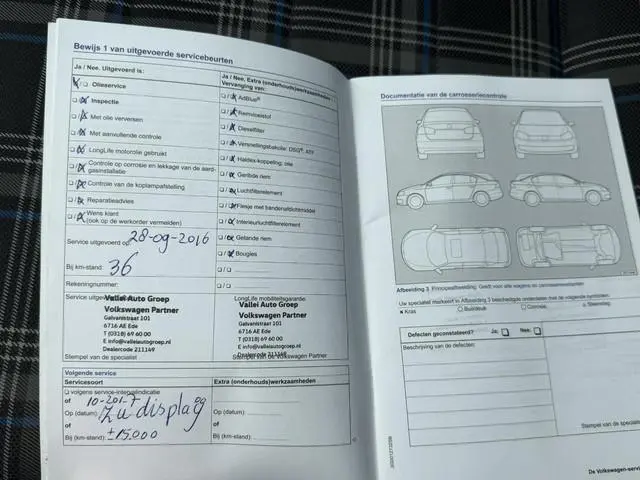 Bewijs 1 van uitgevoerde servicebeurten
Ja / Nee. Uitgevoerd is:
Olieservice
Inspectie
Met olie verversen
Met aanvullende controle
LongLife motorolie gebruikt
Controle op corrosie en lekkage van de aard-
gasinstallatie
Controle van de koplampafstelling
Reparatieadvies
Wens klant
(ook op de werkorder vermelden)
Service uitgevoerd op: 28-09-2016
Bij km-stand: 36
Rekeningnummer:
Service uitgevoerd
Vallei Auto Groep
Volkswagen Partner
Galvanistraat 101
6716 AE Ede
T (0318) 69 60 00
E info@valleiautogroep.nl
Dealercode 211149
Stempel van de specialist
Ja / Nee. Extra (onderhouds)werkzaamheden
Vervanging van:
AdBlue®
Remvloeistof
Dieselfilter
Versnellingsbakolie: DSG®, ATF
Haldex-koppeling: olie
Geribde riem
Luchtfilterelement
Flesje met bandenafdichtmiddel
Interieurluchtfilterelement
Getande riem
Bougies
LongLife mobiliteitsgarantie
Vallei Auto Groep
Volkswagen Partner
Galvanistraat 101
6716 AE Ede
T (0318) 69 60 00
E info@valleiautogroep.nl
Dealercode 211149
Stempel van de Volkswagen Partner
Volgende service
Servicesoort
volgens service-intervalindicatie
of
Op (datum):
of
Bij (km-stand): ±15.000
Extra (onderhouds)werkzaamheden
Op (datum):
of
Bij (km-stand):
Documentatie van de carrosseriecontrole
Afbeelding 3 Principeafbeelding: Geldt voor alle wagens en carrosserievarianten
Uw specialist markeert in Afbeelding 3 beschadigde onderdelen met de volgende symbolen:
× Kras
Corrosie
△ Steenslag
Defecten geconstateerd? Ja: Nee:
Beschrijving van de defecten:
Stempel van de specialist
De Volkswagen-serv